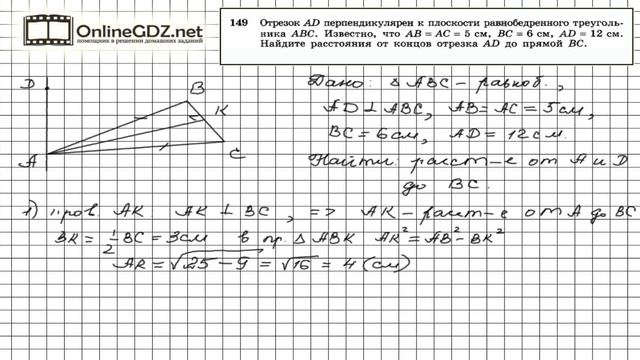 OnlineGDZ.net
помощник в решении домашних заданий
149 Отрезок AD перпендикулярен к плоскости равнобедренного треуголь-
ника ABC. Известно, что AB = AC = 5 см, BC = 6 см, AD = 12 см.
Найдите расстояния от концов отрезка AD до прямой BC.
D
B
K
A
C
Дано: △ABC – равноб.,
AD ⊥ ABC, AB = AC = 5см,
BC = 6см, AD = 12см.
Найти: расст–е от A и D
до BC.
1) пров. AK. AK ⊥ BC, => AK – расст–е от A до BC
BK = 1/2 BC = 3см в пр. △ ABK AK² = AB² – BK²
AK = √25 – 9 = √16 = 4 (см)